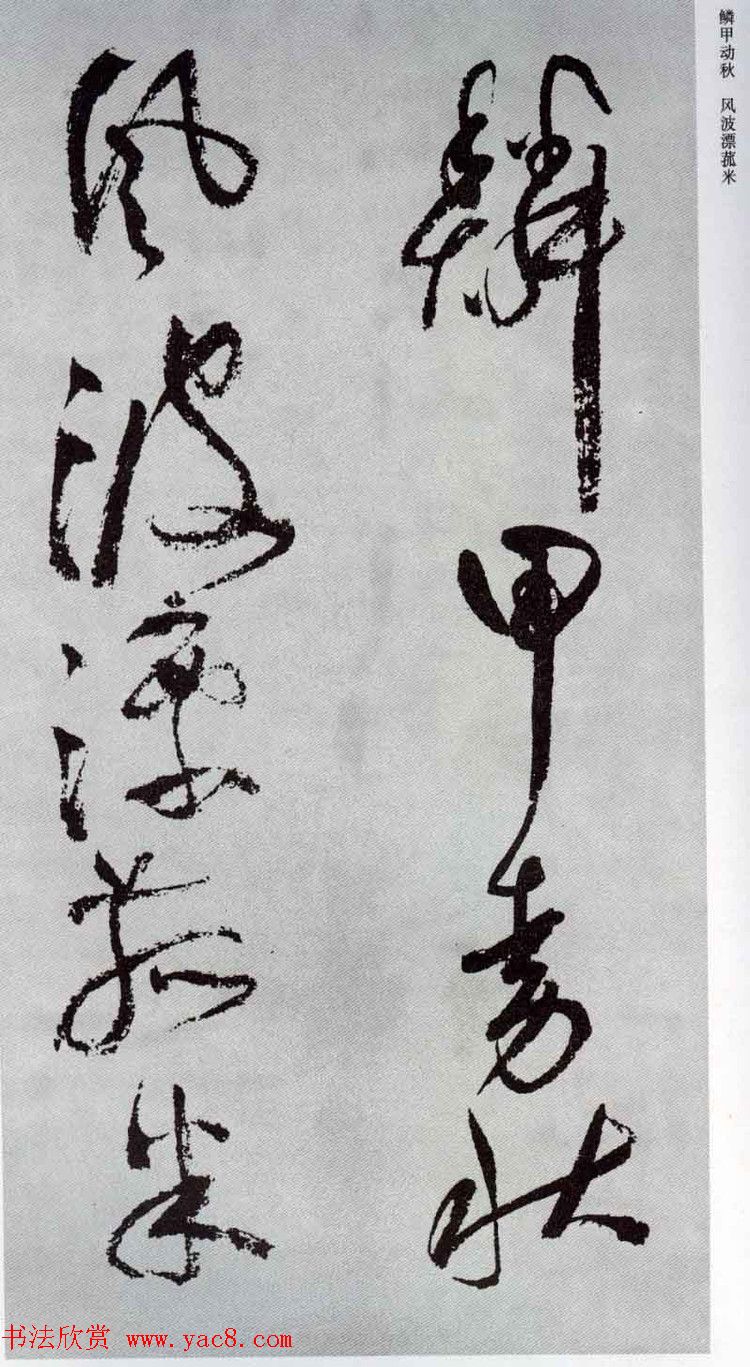 鳞甲动秋　风波漂菰米
鱗甲動秋
風波漂菰米
书法欣赏 www.yac8.com